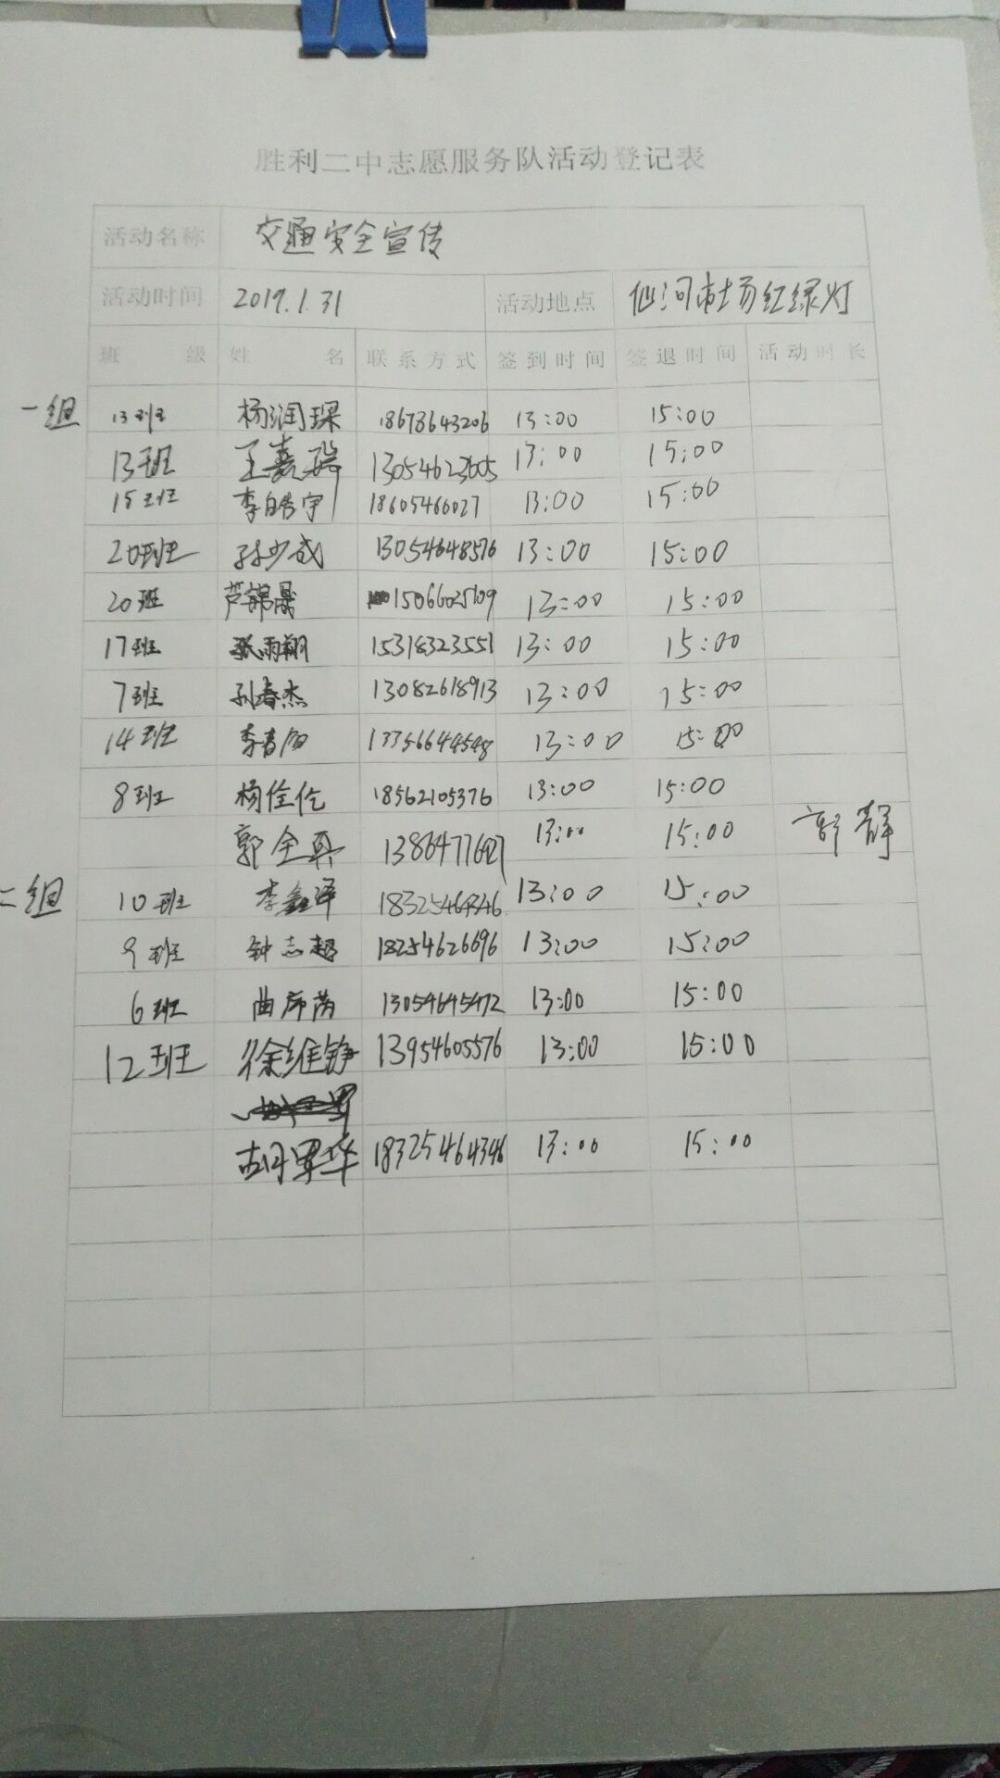 胜利二中志愿服务队活动登记表
活动名称 交通安全宣传
活动时间 2019.1.31 活动地点 仙河市场红绿灯
班级 姓名 联系方式 签到时间 签退时间 活动时长
一组 13班 杨润琛 18678643206 13:00 15:00
13班 王嘉瑞 13054623605 13:00 15:00
15班 李皓宇 18605466027 13:00 15:00
20班 孙少成 13054648576 13:00 15:00
20班 芦锦晟 15066025109 13:00 15:00
17班 张雨翔 15318323551 13:00 15:00
7班 孙春杰 13082618913 13:00 15:00
14班 李春阳 13:00 15:00
8班 杨佺伦 18562105376 13:00 15:00
郭全真 13:00 15:00 郭静
二组 10班 李鑫泽 13:00 15:00
9班 钟志超 18254626696 13:00 15:00
6班 曲席芮 13054645472 13:00 15:00
12班 徐维铮 13954605576 13:00 15:00
胡军华 18325464346 13:00 15:00